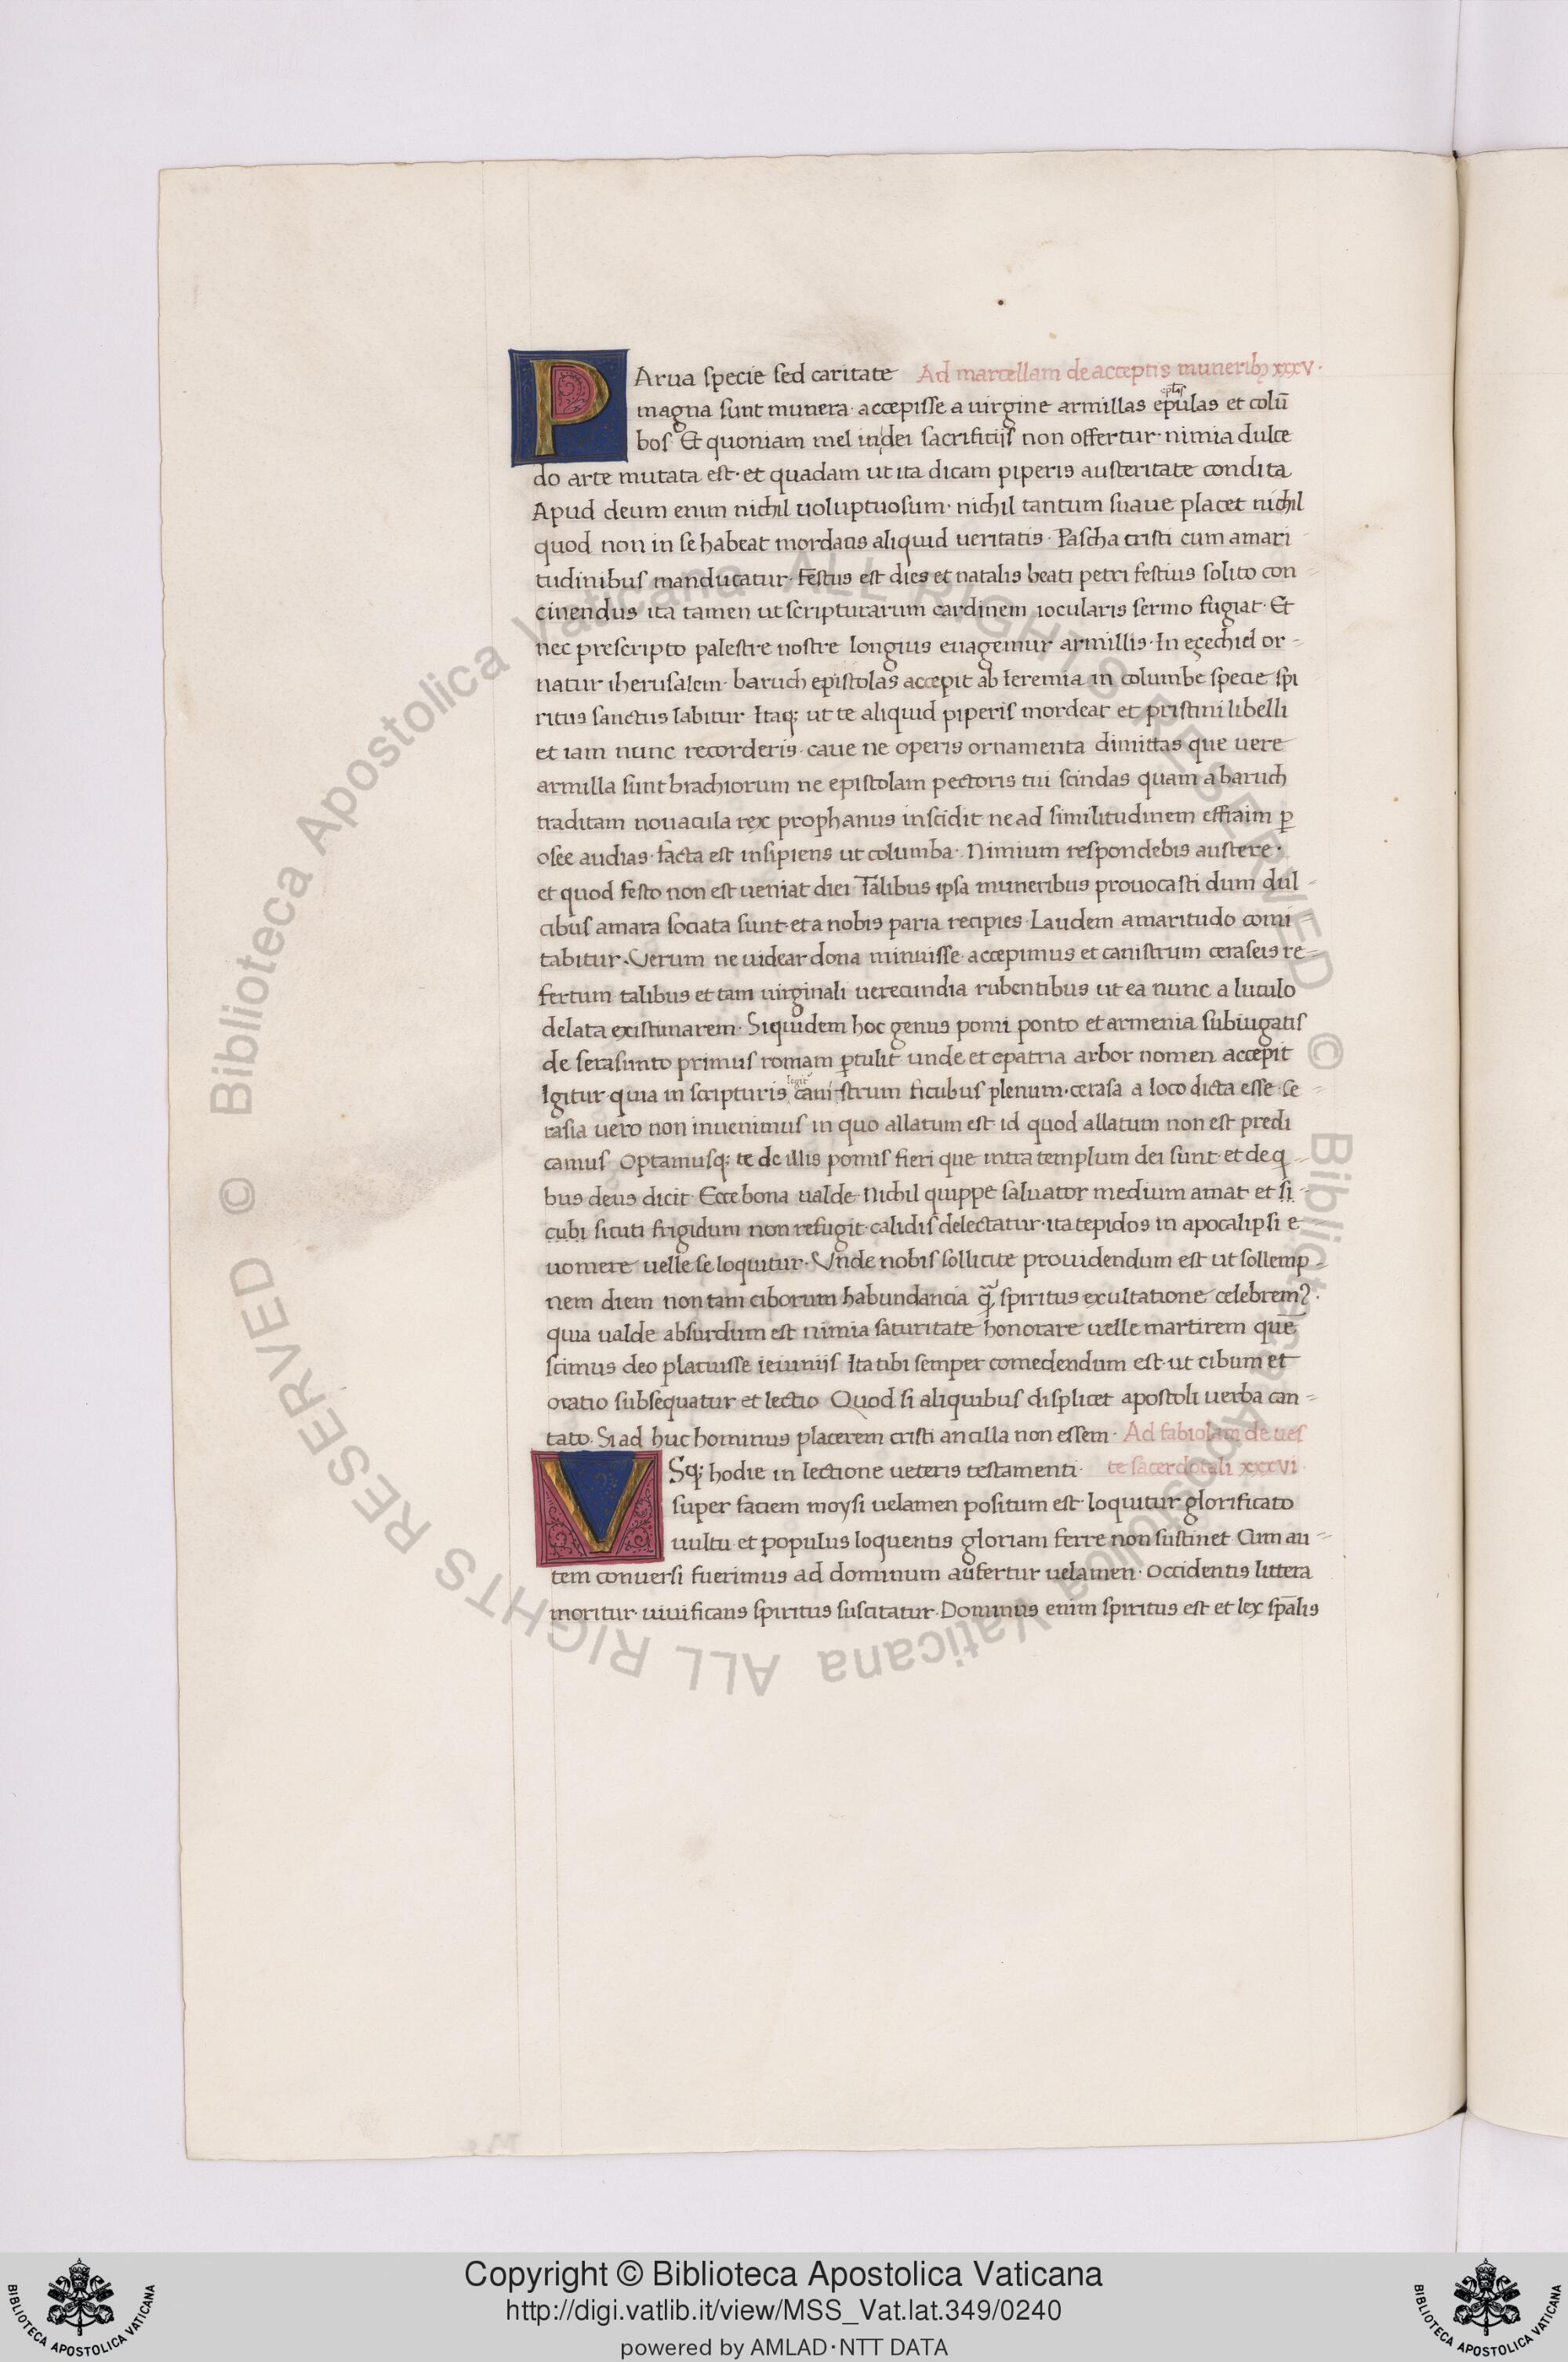 PArua specie sed caritate Ad marcellam de acceptis munerib; xxxv.
magna sunt munera· accepisse a uirgine armillas epulas et colū
bos· Et quoniam mel in dei sacrificijs non offertur· nimia dulce
do arte mutata est· et quadam ut ita dicam piperis austeritate condita
Apud deum enim nichil uoluptuosum· nichil tantum suaue placet nichil
quod non in se habeat mordacis aliquid ueritatis· Pascha cristi cum amari
tudinibus manducatur· Festus est dies et natalis beati petri festius solito con
cinendus ita tamen ut scripturarum cardinem iocularis sermo fugiat· Et
nec prescripto palestre nostre longius euagemur armillis· In eçechiel or-
natur iherusalem· baruch epistolas accepit ab Ieremia in columbe specie spi
ritus sanctus labitur Itaq; ut te aliquid piperis mordeat et pristini libelli
et iam nunc recorderis· caue ne operis ornamenta dimittas que uere
armilla sunt brachiorum ne epistolam pectoris tui scindas quam a baruch
traditam nouacula rex prophanus inscidit ne ad similitudinem effraim ꝑ
osee audias· facta est insipiens ut columba· Nimium respondebis austere·
et quod festo non est ueniat diei Talibus ipsa muneribus prouocasti dum dul-
cibus amara sociata sunt· et a nobis paria recipies· Laudem amaritudo comi-
tabitur· Verum ne uidear dona minuisse· accepimus et canistrum ceraseis re-
fertum talibus et tam uirginali uerecundia rubentibus ut ea nunc a luculo
delata existimarem· Siquidem hoc genus pomi ponto et armenia subiugatis
de serasunto primus romam ꝑtulit unde et epatria arbor nomen accepit
Igitur quia in scripturis canistrum ficubus plenum· cerasa a loco dicta esse· se-
rasia uero non inuenimus in quo allatum est id quod allatum non est predi
camus· Optamusq; te de illis pomis fieri que intra templum dei sunt· et de q-
bus deus dicit· Ecce bona ualde· Nichil quippe saluator medium amat et si-
cubi sicuti frigidum non refugit· calidis delectatur· ita tepidos in apocalipsi e
uomere uelle se loquutur· Vnde nobis sollicite prouidendum est ut sollemp-
nem diem non tam ciborum habundancia q̃ spiritus exultatione celebrem?·
quia ualde absurdum est nimia saturitate honorare uelle martirem que
scimus deo placuisse ieiunijs Ita tibi semper comedendum est· ut cibum et
oratio subsequatur et lectio Quod si aliquibus displicet apostoli uerba can-
tato· Si ad huc hominus placerem cristi ancilla non essem· Ad fabiolam de ues
VSq; hodie in lectione ueteris testamenti· te sacerdotali xxxvi·
super faciem moysi uelamen positum est· loquitur glorificato
uultu et populus loquentis gloriam ferre non sustinet Cum au-
tem conuersi fuerimus ad dominum aufertur uelamen· Occidentis littera
moritur uiuificans spiritus suscitatur· Dominus enim spiritus est et lex sp̄alis
© Biblioteca Apostolica Vaticana ALL RIGHTS RESERVED © Biblioteca Apostolica Vaticana ALL RIGHTS RESERVED
Copyright © Biblioteca Apostolica Vaticana
http://digi.vatlib.it/view/MSS_Vat.lat.349/0240
powered by AMLAD·NTT DATA
BIBLIOTECA APOSTOLICA VATICANA
BIBLIOTECA APOSTOLICA VATICANA